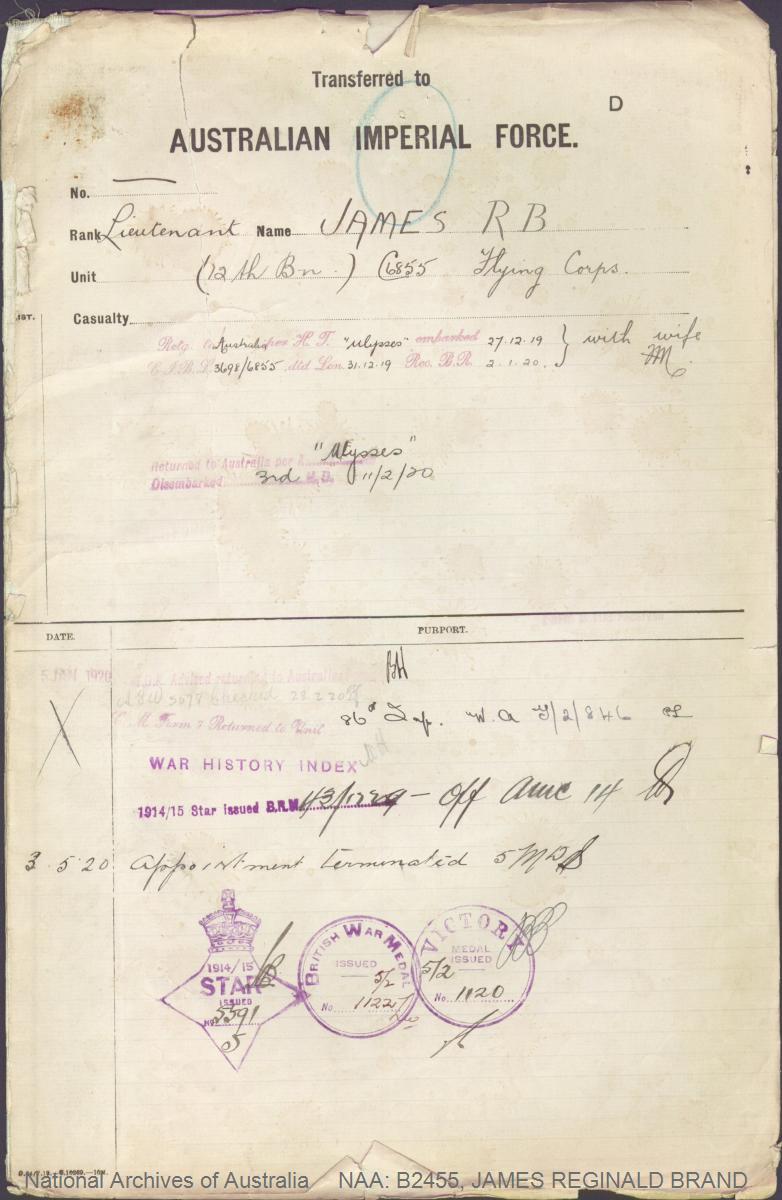 Transferred to
D
AUSTRALIAN IMPERIAL FORCE.
No.
Rank Lieutenant Name JAMES R B
Unit (12th Bn.) C6855 Flying Corps.
IST.
Casualty
Retg. to Australia per H. T. "Ulysses" embarked 27.12.19 } with wife
3698/6855 dtd Lon. 31.12.19 Rec. B.R. 2.1.20.
"Ulysses"
Returned to Australia per
Disembarked 3rd M.D. 11/2/20
DATE.
PURPORT.
5 JAN 1920 Advised returning to Australia
5078 Checked 23 2 20
Form & Returned to Unit
WAR HISTORY INDEX
1914/15 Star issued B.R.M. 43/1229 - Off
3 5 20 Appointment terminated 5 MD
1914/15
STAR
ISSUED
No 5591
BRITISH WAR MEDAL
ISSUED
5/2
No. 11227
VICTORY
MEDAL
ISSUED
5/2
No. 1120
National Archives of Australia NAA: B2455, JAMES REGINALD BRAND